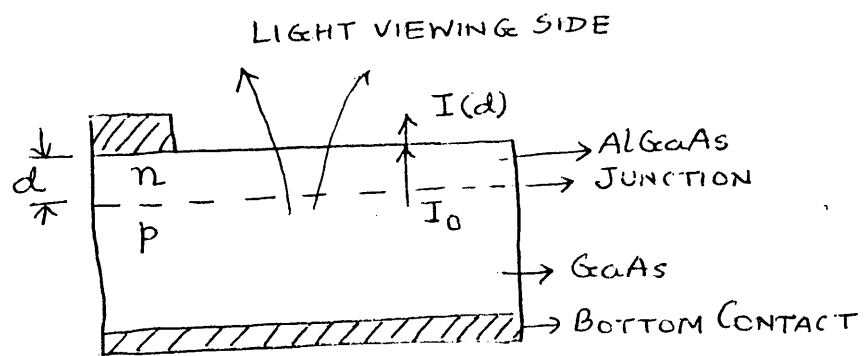 LIGHT VIEWING SIDE
I(d)
AlGaAs
d
n
JUNCTION
p
I0
GaAs
BOTTOM CONTACT